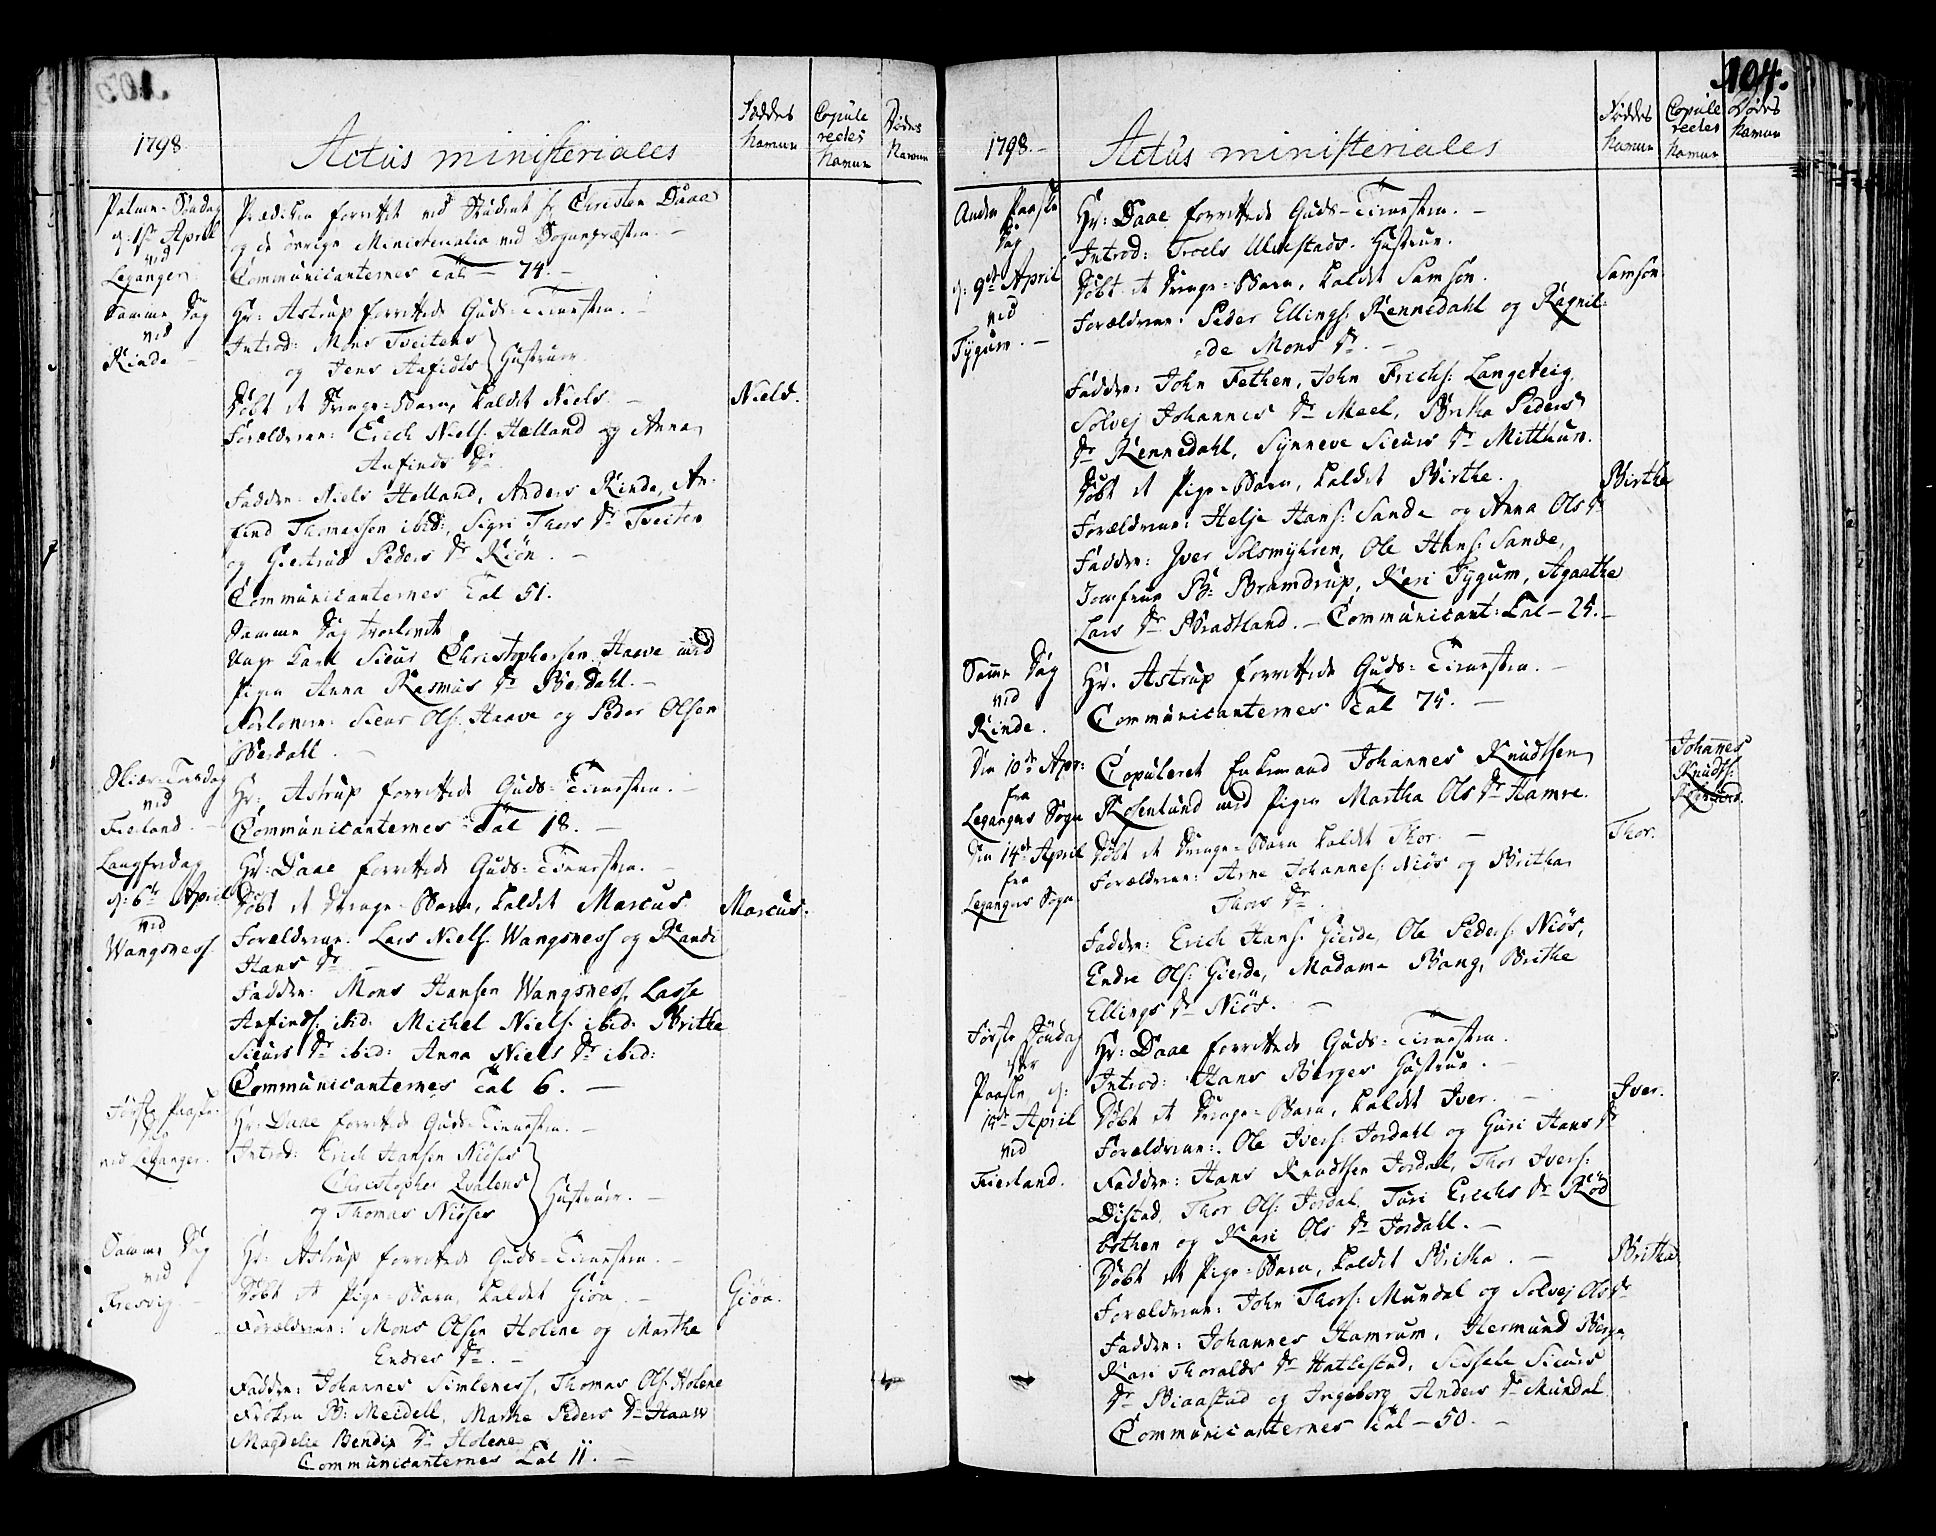 1798.
Actus ministeriales
Føddes Navne
Copule redes Navne
Dødes Navne
Palme-Søndag d: 1ste April ved Leganger.
Prædiken forrettet ved Student hr Christen Daae
og de øvrige Ministerialia ved Sognepræsten. –
Communicanternes Tal – 74. –
Samme Dag ved Rinde –
Hr: Astrup forrettede Guds-Tienesten. –
Introd: Mons Tveitens
og Jens Anfinds } Hustruer.
Døbt et Drenge-Barn, kaldet Niels. –
Niels.
Forældrene: Erich Niels: Hælland og Anna
Anfinds Dr.
Faddere: Niels Helland, Anders Rinde, An-
find Thomassen ibid:, Sigri Thors Dr Tveiten
og Giertrud Peders Dr Riön. –
Communicanternes Tal 51.
Samme Dag trolovet
Unge Karl Siur Christophersen Haave med
Pigen Anna Rasmus Dr Berdahl. –
Forlovere: Siur Ols: Haave og Peder Olsen
Berdahl. –
Skiær-Torsdag ved Fierland. –
Hr: Astrup forrettede Guds-Tienesten. –
Communicanternes Tal 18. –
Langfredag d: 6te April ved Wangsness.
Hr: Daae forrettede Guds-Tienesten. –
Døbt et Drenge-Barn, kaldet Marcus.
Marcus:
Forældrene: Lars Niels: Wangsness og Randi
Hans Dr. –
Faddere: Mons Hansen Wangsness, Lasse
Anfinds: ibid: Michel Niels: ibid: Brithe
Siurs Dr ibid: Anna Niels Dr ibid:
Communicanternes Tal 6. –
Første Paaske-Dag ved Leganger.
Hr: Daae forrettede Guds-Tienesten. –
Introd: Erich Hansen Niöses
Christopher Qvalens
og Thomas Niöses } Hustruer. –
Samme Dag ved Fresvig. –
Hr: Astrup forrettede Guds-Tienesten. –
Døbt et Pige-Barn, kaldet Giöa. –
Giöa.
Forældrene: Mons Olsen Holene og Marthe
Endres Dr. –
Faddere: Johannes Simleness, Thomas Ols: Holene
Frøken B: Meidell, Marthe Peders Dr Haave
Magdele Bendix Dr Holene
Communicanternes Tal 11. –
104.
1798. –
Actus ministeriales
Føddes Navne
Copule redes Navne
Dødes Navne
Anden Paaske Dag d: 9de April ved Tygum. –
Hr: Daae forrettede Guds-Tienesten. –
Introd: Troels Ulvestads Hustrue.
Døbt et Drenge-Barn, kaldet Samson.
Samson
Forældrene: Peder Ellings: Rennedahl og Ragnil-
de Mons Dr. –
Faddere: John Fethen, John Frichs: Langeteig,
Solvej Johannes Dr Meel, Britha Peders
Dr Rennedahl, Synneve Siurs Dr Mitthun.
Døbt et Pige-Barn, kaldet Birthe.
Birthe
Forældrene: Helje Hans: Sande og Anna Ols Dr
Faddere: Iver Solsmyhren, Ole Hans: Sande,
Jomfrue B: Bramdrup, Kari Tygum, Agaathe
Lars Dr Bratland. – Communicant: Tal – 25. –
Samme Dag ved Rinde.
Hr. Astrup forrettede Guds-Tienesten. –
Communicanternes Tal 75. –
Den 10de Apr: fra Legangers Sogn
Copuleret Enkemand Johannes Knudtsen
Rosenlund med Pigen Martha Ols Dr Hamre.
Johannes Knudts: Rosenlund.
Den 14de April fra Legangers Sogn
Døbt et Drenge-Barn kaldet Thor. –
Thor.
Forældrene: Arne Johannes: Niös og Britha
Thors Dr.
Faddere: Erich Hans: Gierde, Ole Peders: Niös,
Endre Ols: Gierde, Madame Bang, Brithe
Ellings Dr Niös. –
Første Søndag efter Paaske d: 15de April ved Fierland.
Hr: Daae forrettede Guds-Tienesten.
Introd: Hans Berges Hustrue. –
Døbt et Drenge-Barn, kaldet Iver. –
Iver.
Forældrene: Ole Ivers: Jordahl og Guri Hans Dr
Faddere: Hans Knudtsen Jordal, Thor Ivers:
Distad, Thor Ols: Jordal, Turi Erichs Dr Röd
bothen og Kari Ols Dr Jordahl. –
Døbt et Pige-Barn, kaldet Britha. –
Britha
Forældrene: John Thors: Mundal og Solvej Ols Dr
Faddere: Johannes Hamrum, Hermund Berge
Kari Thoralds Dr Hatlestad, Sissele Siurs
Dr Biaastad og Ingeborg Anders Dr Mundal.
Communicanternes Tal – 50. –